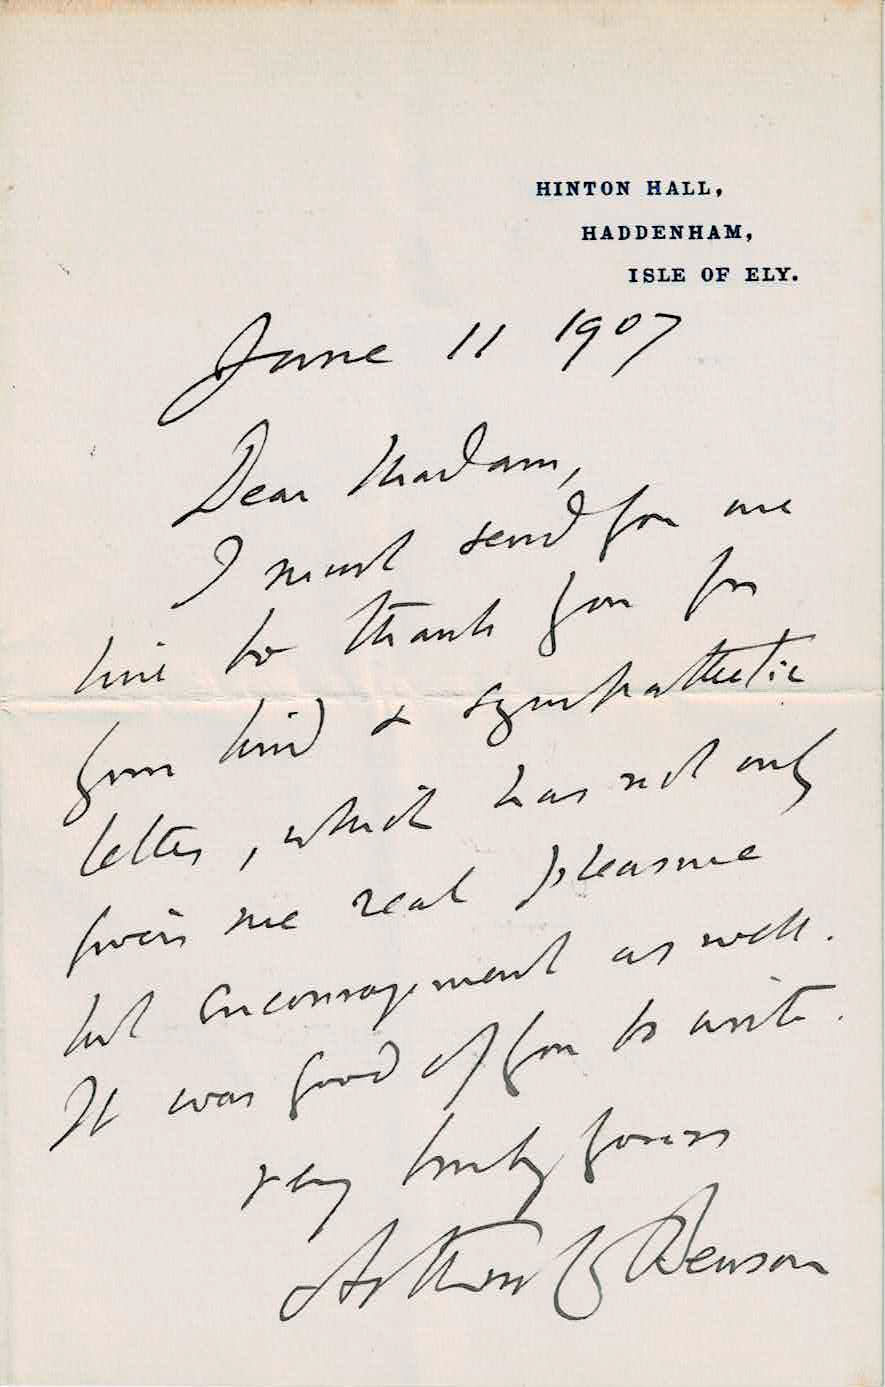 HINTON HALL,
HADDENHAM,
ISLE OF ELY.
June 11 1907
Dear Madam,
I must send you one
line to thank you for
your kind & sympathetic
letter, which has not only
given me real pleasure
but encouragement as well.
It was good of you to write.
very truly yours
Arthur C Benson